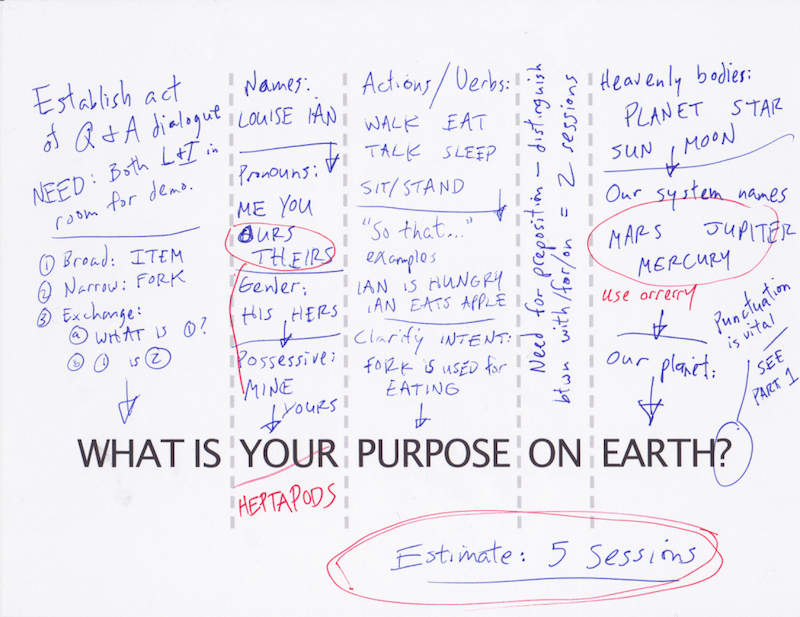 Establish act
of Q & A dialogue
NEED: Both L&I in
room for demo.
① Broad: ITEM
② Narrow: FORK
③ Exchange:
ⓐ WHAT IS ①?
ⓑ ① IS ②
Names:
LOUISE IAN
Pronouns:
ME YOU
OURS
THEIRS
Gender:
HIS HERS
Possessive:
MINE
YOURS
Actions/Verbs:
WALK EAT
TALK SLEEP
SIT/STAND
"So that..."
examples
IAN IS HUNGRY
IAN EATS APPLE
Clarify INTENT:
FORK IS USED for
EATING
Need for preposition - distinguish
btwn with/for/on = 2 sessions
Heavenly bodies:
PLANET STAR
SUN MOON
Our system names
MARS JUPITER
MERCURY
use orrery
Our planet:
Punctuation
is vital
SEE
PART 1
WHAT IS YOUR PURPOSE ON EARTH?
HEPTAPODS
Estimate: 5 Sessions